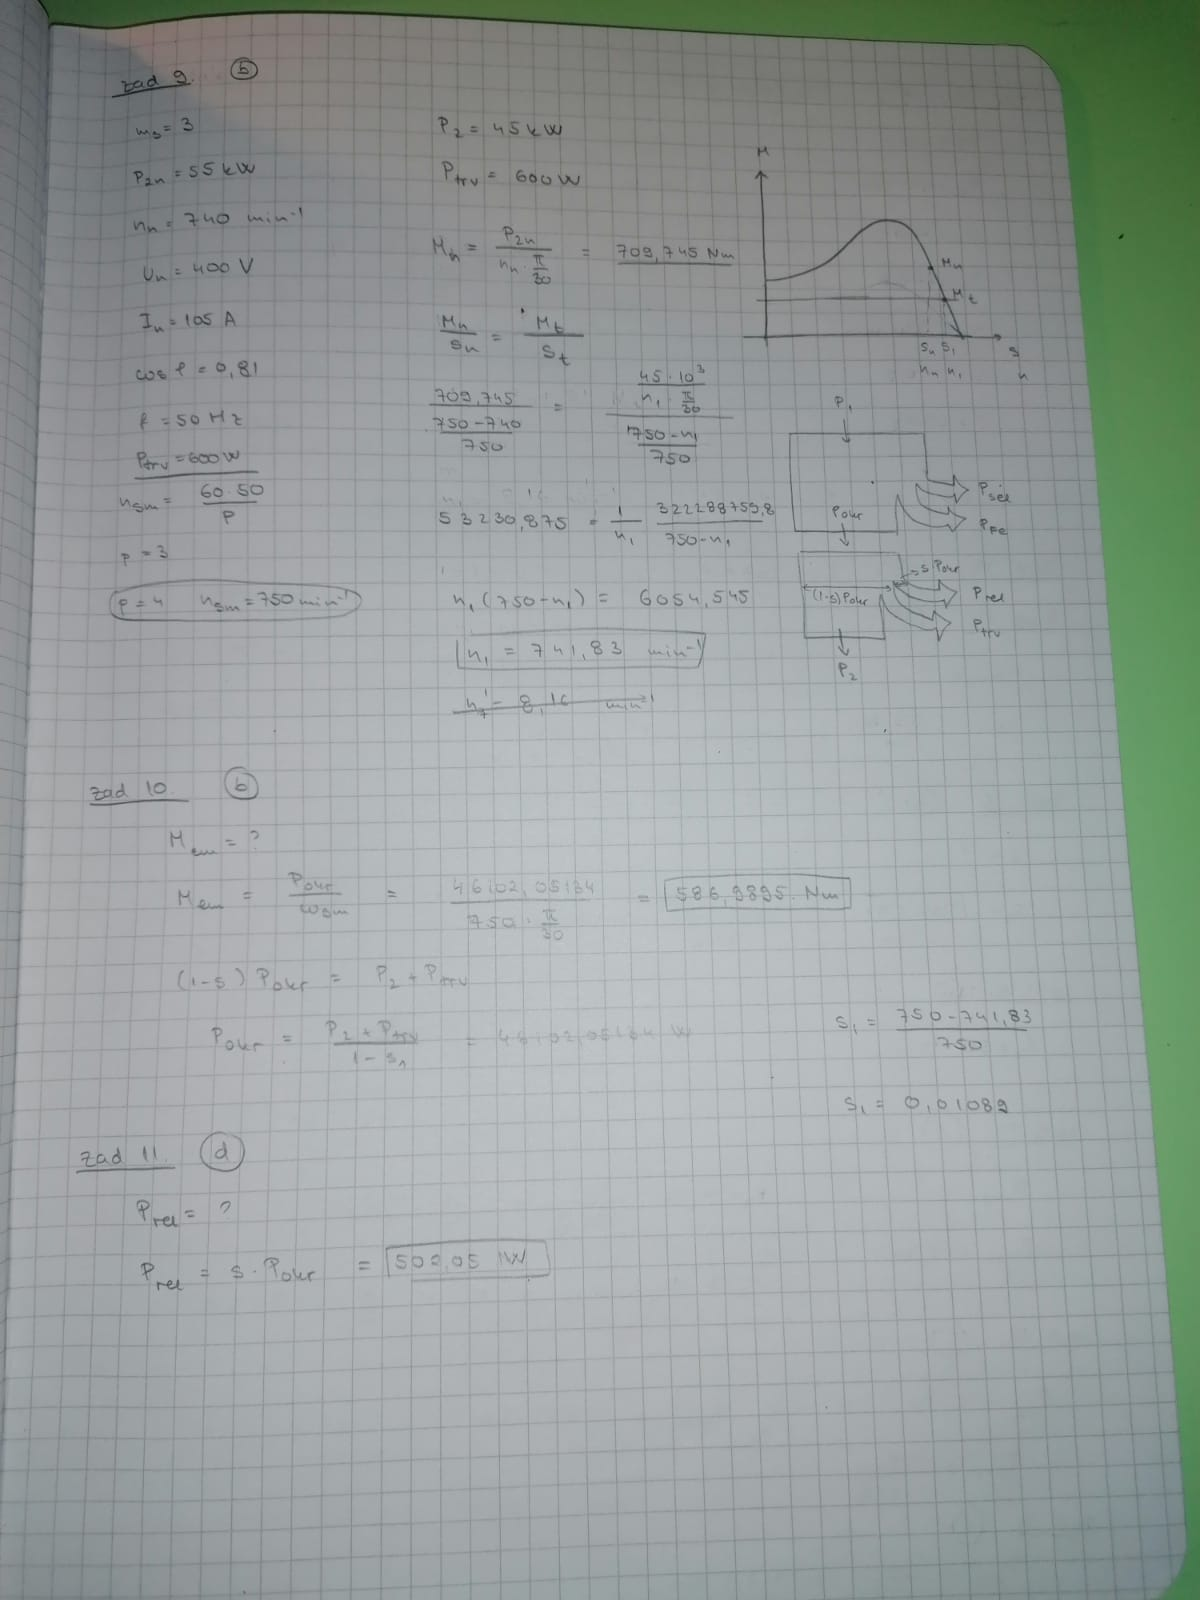 zad 9. b
m₃ = 3
P₂ₙ = 55 kW
nₙ = 740 min⁻¹
Uₙ = 400 V
Iₙ = 105 A
cos φ = 0,81
f = 50 Hz
Ptrv = 600 W
nsm = 60·50 / p
p = 3
p = 4 nsm = 750 min⁻¹
P₂ = 45 kW
Ptrv = 600 W
Mₙ = P₂ₙ / (nₙ · π/30) = 709,745 Nm
Mₙ / sₙ = Mt / st
709,745 / ((750-740)/750) = (45·10³ / (n₁ · π/30)) / ((750-n₁)/750)
53230,875 = 1/n₁ · 322288759,8 / (750-n₁)
n₁(750-n₁) = 6054,545
n₁ = 741,83 min⁻¹
8,16 min⁻¹
M
Mₙ
Mt
sₙ s₁ s
nₙ n₁ n
P₁
Psél
PFe
Pokr
s Pokr
(1-s) Pokr
Prel
Ptrv
P₂
zad 10. b
Mem = ?
Mem = Pokr / ωsm = 46102,05134 / (750 · π/30) = 586,9895 Nm
(1-s) Pokr = P₂ + Ptrv
Pokr = (P₂ + Ptrv) / (1-s₁) = 46102,05134 W
s₁ = (750-741,83) / 750
s₁ = 0,01089
zad 11. d
Prel = ?
Prel = s · Pokr = 502,05 W